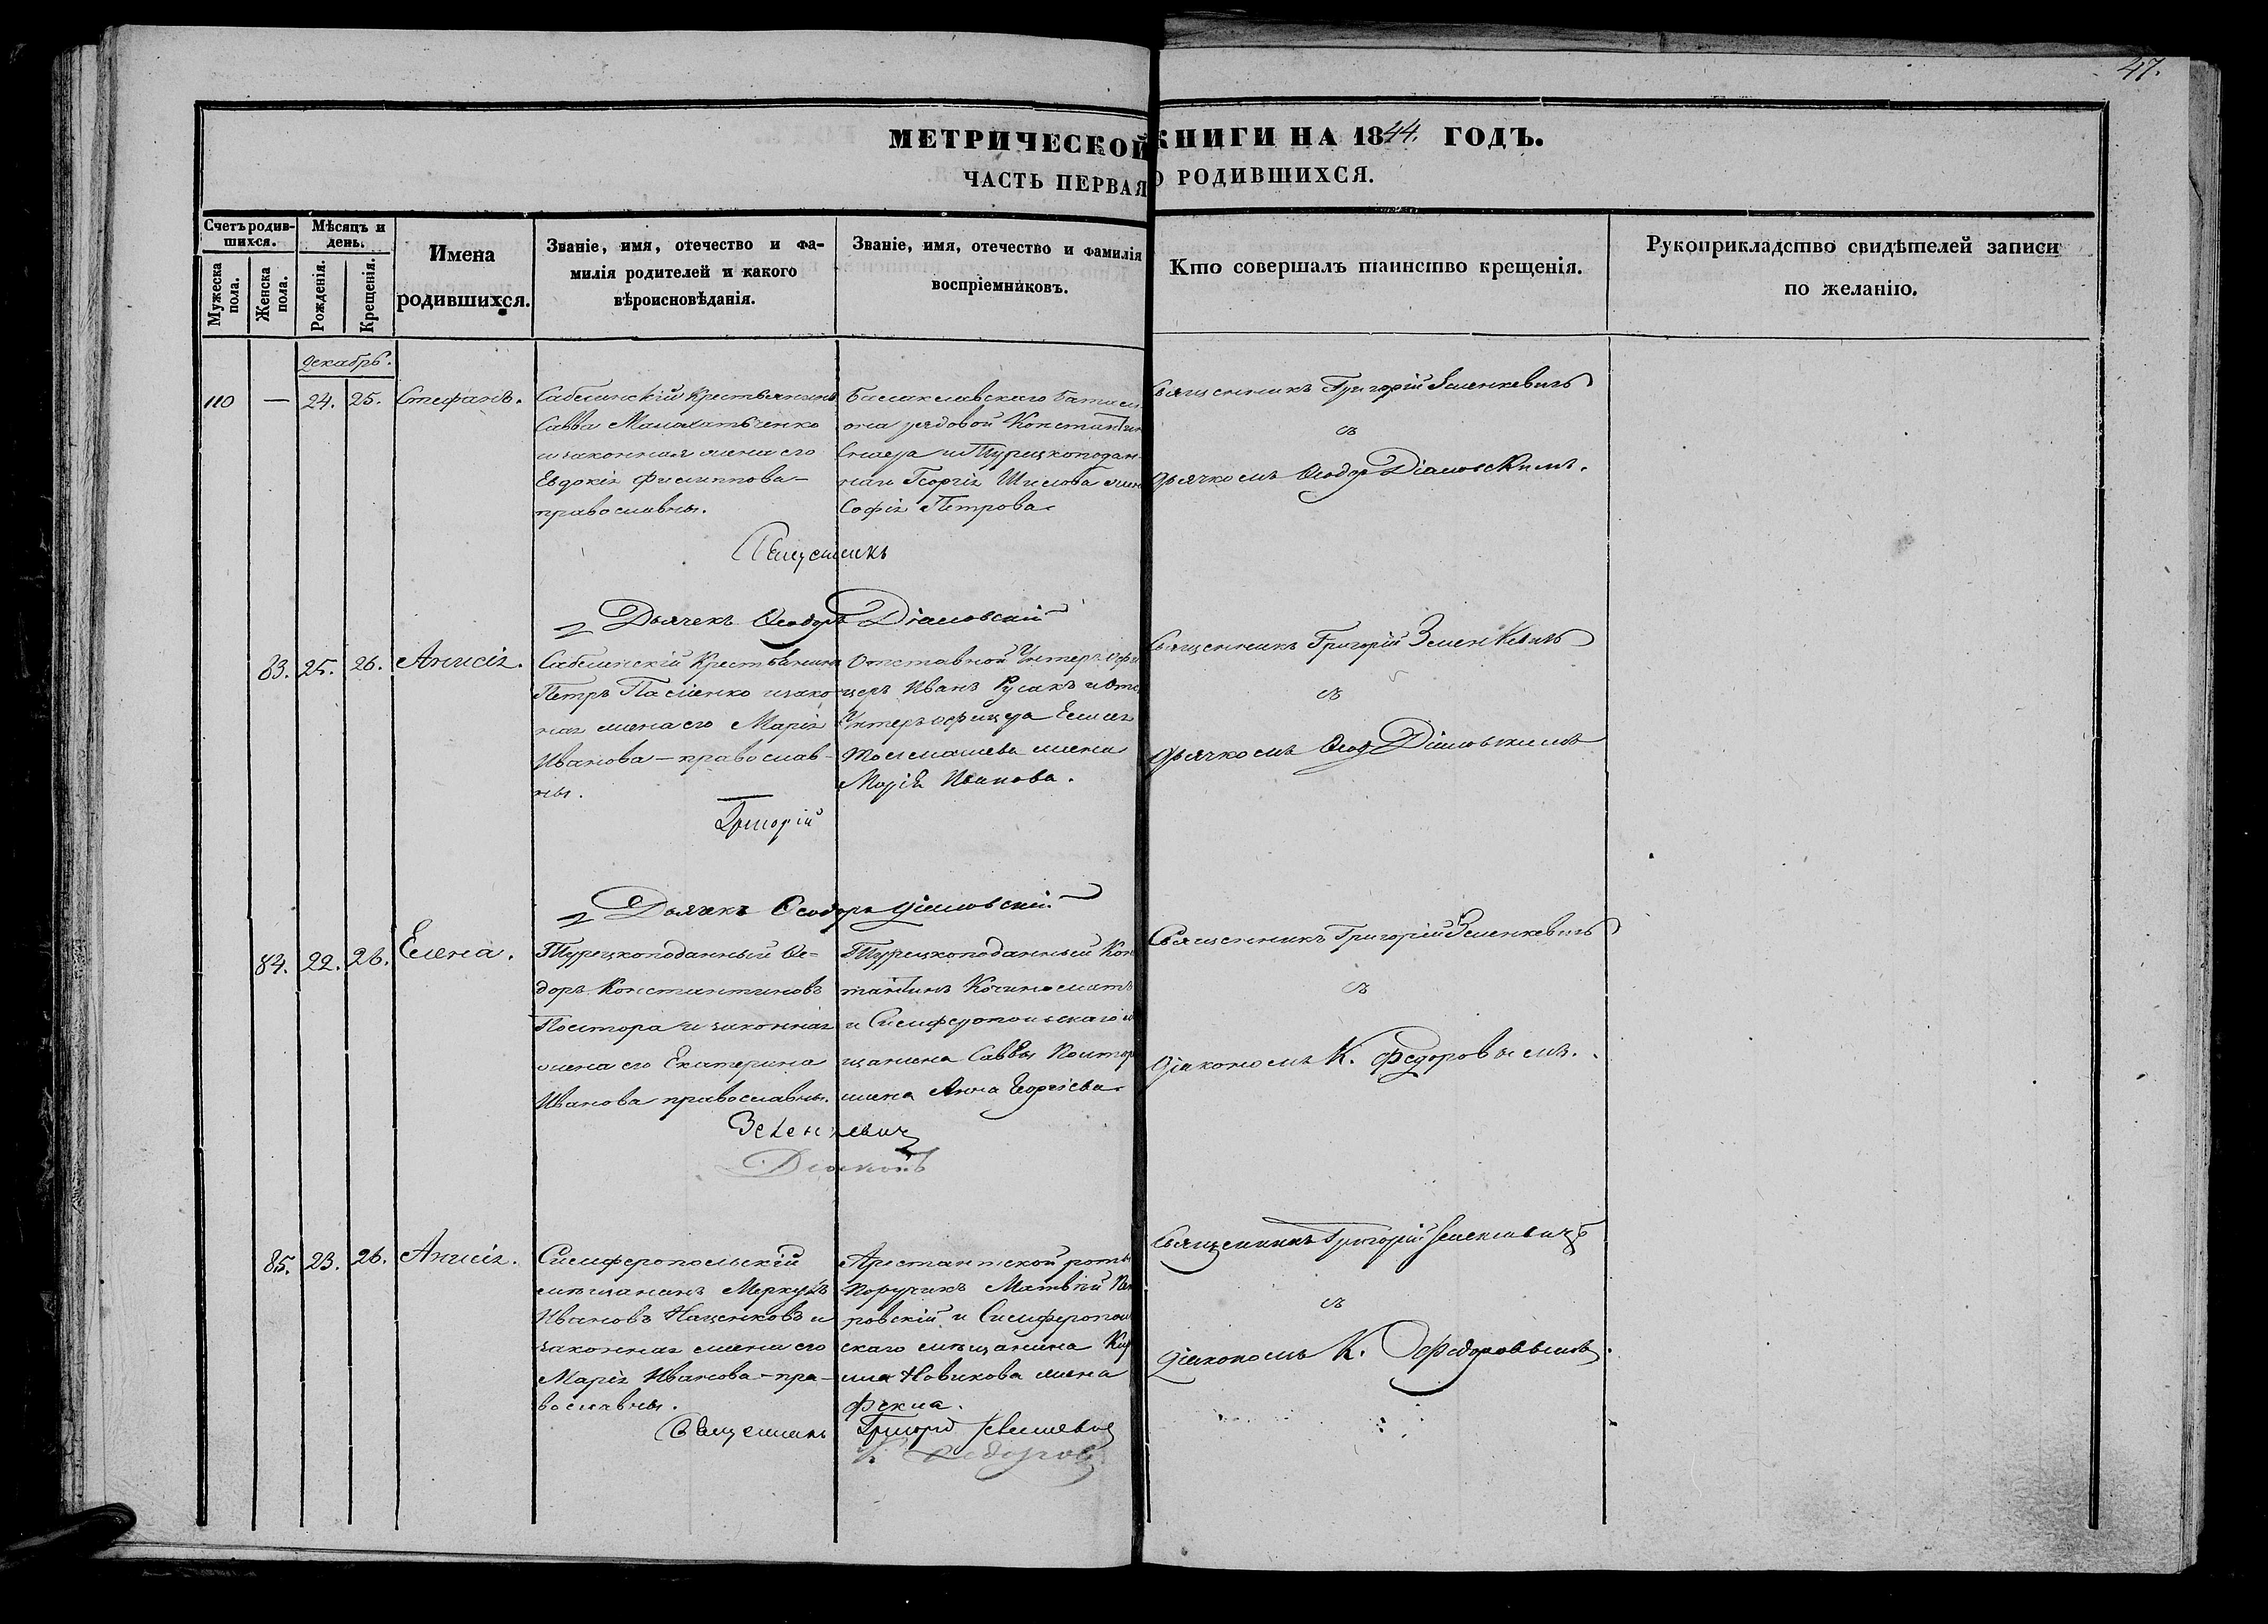 47.
МЕТРИЧЕСКОЙ КНИГИ НА 1844. ГОДЪ.
ЧАСТЬ ПЕРВАЯ О РОДИВШИХСЯ.
Счетъ родив-
шихся.
Мужеска пола.
Женска пола.
Мѣсяцъ и
день.
Рожденія.
Крещенія.
Имена
родившихся.
Званіе, имя, отечество и фа-
милія родителей и какого
вѣроисновѣданія.
Званіе, имя, отечество и фамилія
воспріемниковъ.
Кто совершалъ таинство крещенія.
Рукоприкладство свидѣтелей записи
по желанію.
декабрь.
110 — 24. 25. Стефанъ.
Саблинскій Крестьянинъ
Савва
и законная жена его
Евдокія Филиппова —
православны.
Балаклавскаго Баталі
она рядовой Константин
и Турецкоподан-
наго Георгія Шилова жен
Софія Петрова
Священникъ Григорій Зеленкевичъ
съ
дьячкомъ Ѳеодор Діаловскимъ.
Священникъ
Дьячекъ Ѳеодоръ Діаловскій
83. 25. 26. Анисія.
Саблинскій Крестьянинъ
Петръ Пасленко и зако
ная жена его Марія
Иванова — православ-
ны.
Отставной Унтеръ офи
церъ Иванъ Русакъ и Отс
Унтеръ офицера Елисея
жена
Марія Иванова.
Священникъ Григорій Зеленкевичъ
съ
дьячкомъ Ѳеод Діаловскимъ
Григорій
Дьячекъ Ѳеодоръ Діаловскій
84. 22. 26. Елена.
Турецкоподанный Ѳе-
доръ Константиновъ
Полтора и законная
жена его Екатерина
Иванова православны.
Турецкоподанный Кон
тантинъ
и Симферопольскаго м
щанина Саввы Полтор
жена Анна Георгіева
Священникъ Григорій Зеленкевичъ
съ
діакономъ К. Федоровымъ.
Зеленкевич
Діаконъ
85. 23. 26. Анисія.
Симферопольскій
мѣщанинъ Меркулъ
Ивановъ Наценковъ и
законная жена его
Марія Иванова — пра-
вославны.
Арестантской роты
Поручикъ Матвѣй
ровскій и Симферопол
скаго мѣщанина
Новикова жена
Фекла.
Священникъ Григорій Зеленкевичъ
съ
діакономъ К. Федоровымъ.
Священникъ Григорій Зеленкевич
К. Федоров